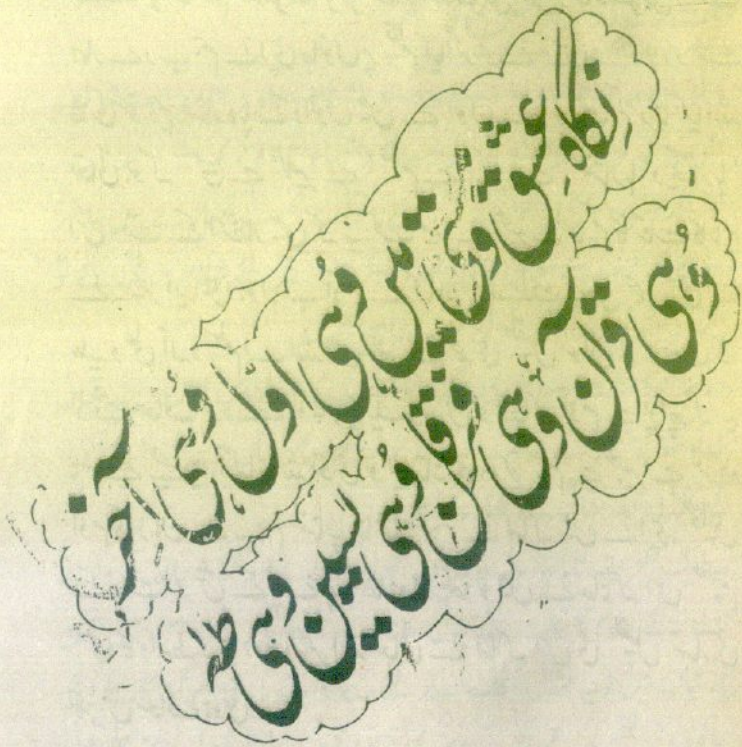 نِگاہِ عشق و مستی میں وُہی اوّل وُہی آخر
وُہی قرآن وُہی فرقان وُہی یٰسین وُہی طٰہٰ